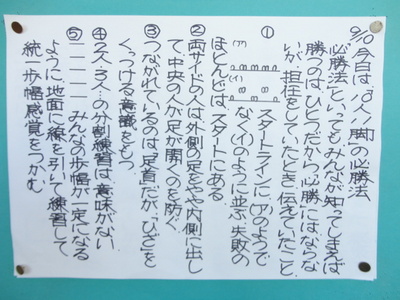 9/10 今日は「8人9脚」の必勝法
「必勝法」といってもみんなが知ってしまえば
勝つのはひとつだから、必勝にはならな
いが、担任をしていたとき伝えていたこと
① スタートラインに(ア)のようで
(ア)
(イ)
なく(イ)のように並ぶ 失敗の
ほとんどは スタートにある
② 両サイドの人は外側の足をやや内側に出し
て、中央の人が足が開くのを防ぐ
③ つながれているのは、「足首」だが、「ひざ」を
くっつける意識をもつ
④ 2人、3人…の分割練習は、意味がない
⑤ 一一一一 みんなの歩幅が一定になる
ように、地面に線を引いて練習して
統一歩幅感覚をつかむ